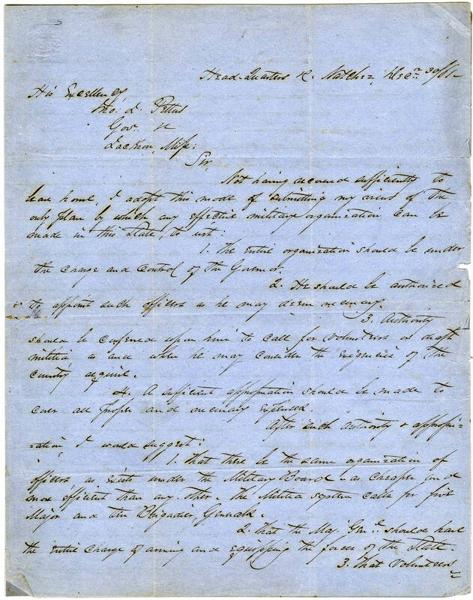 Head Quarters &c. Natchez, Decr. 30/61
His Excellency,
Jno. J. Pettus
Gov. &c
Jackson, Miss:
Sir,
Not having recovered sufficiently to
leave home, I adopt this mode of submitting my views of the
only plan by which any effective military organization can be
made in this State, to wit:
1. The entire organization should be under
the charge and control of the Governor.
2. He should be authorized
to appoint such officers as he may deem necessary.
3. Authority
should be conferred upon him to call for volunteers or draft
militia as and when he may consider the exigencies of the
country require.
4. A sufficient appropriation should be made to
cover all proper and necessary expenses.
After such authority & appropri-
ation, I would suggest:
1. That there be the same organization of
officers, as exists under the Military Board - as cheaper and
more efficient than any other. The Militia system calls for five
Major and ten Brigadier Generals.
2. That the Maj. Genl. should have
the entire charge of arming and equipping the forces of the State.
3. That Volunteers